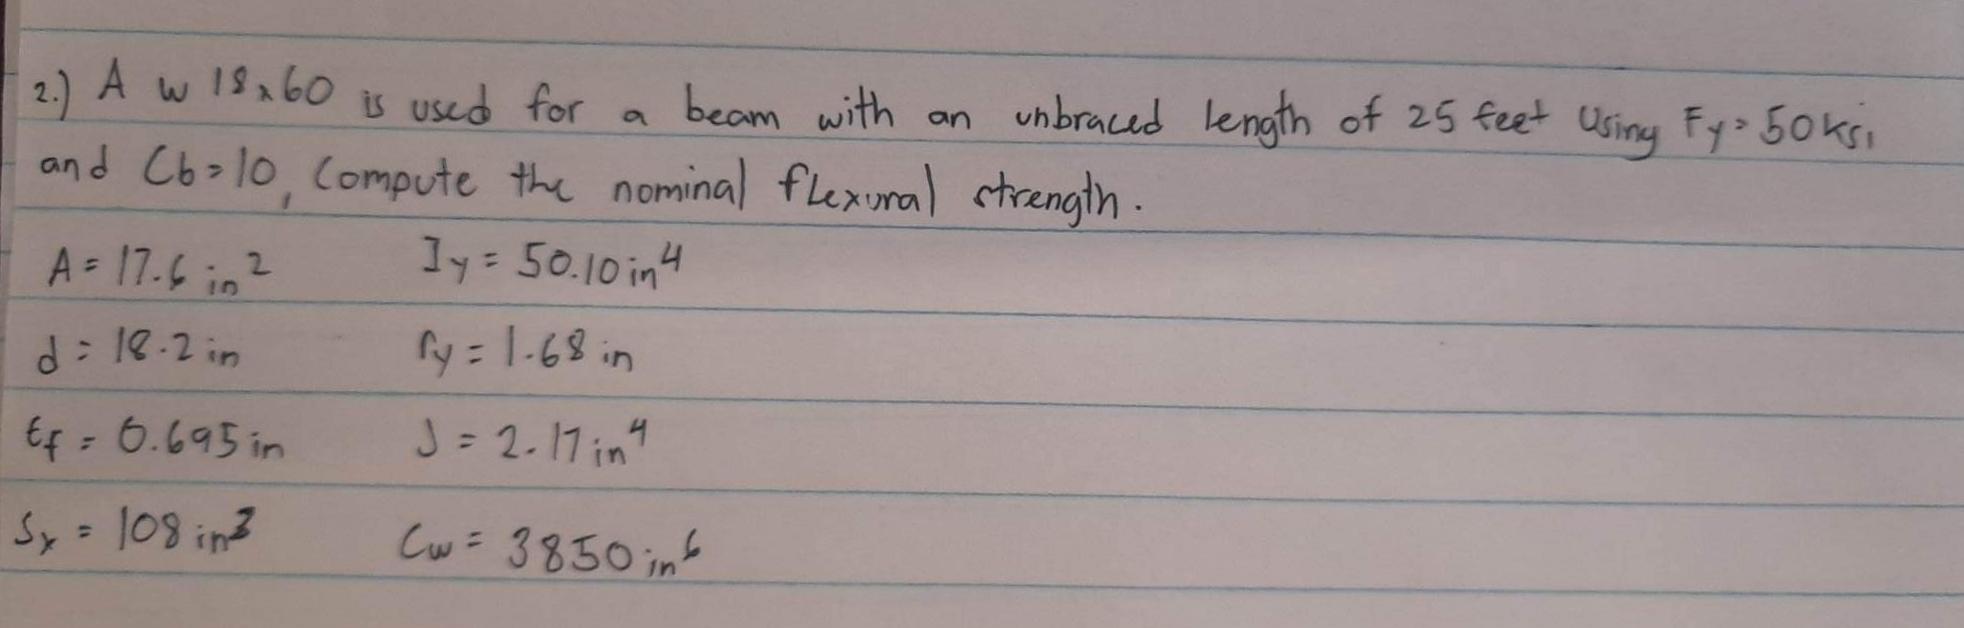 2.) A W 18x60 is used for a beam with an unbraced length of 25 feet Using Fy = 50 ksi
and Cb = 10, Compute the nominal flexural strength.
A = 17.6 in² Iy = 50.10 in⁴
d = 18.2 in ry = 1.68 in
tf = 0.695 in J = 2.17 in⁴
Sx = 108 in³ Cw = 3850 in⁶